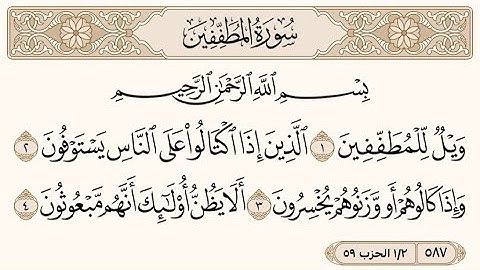 سُورَةُ المُطَفِّفِينَ
بِسْمِ اللَّهِ الرَّحْمَٰنِ الرَّحِيمِ
وَيْلٌ لِّلْمُطَفِّفِينَ ١ الَّذِينَ إِذَا اكْتَالُوا عَلَى النَّاسِ يَسْتَوْفُونَ ٢
وَإِذَا كَالُوهُمْ أَو وَّزَنُوهُمْ يُخْسِرُونَ ٣ أَلَا يَظُنُّ أُولَٰئِكَ أَنَّهُم مَّبْعُوثُونَ ٤
٥٨٧ ١/٢ الحزب ٥٩